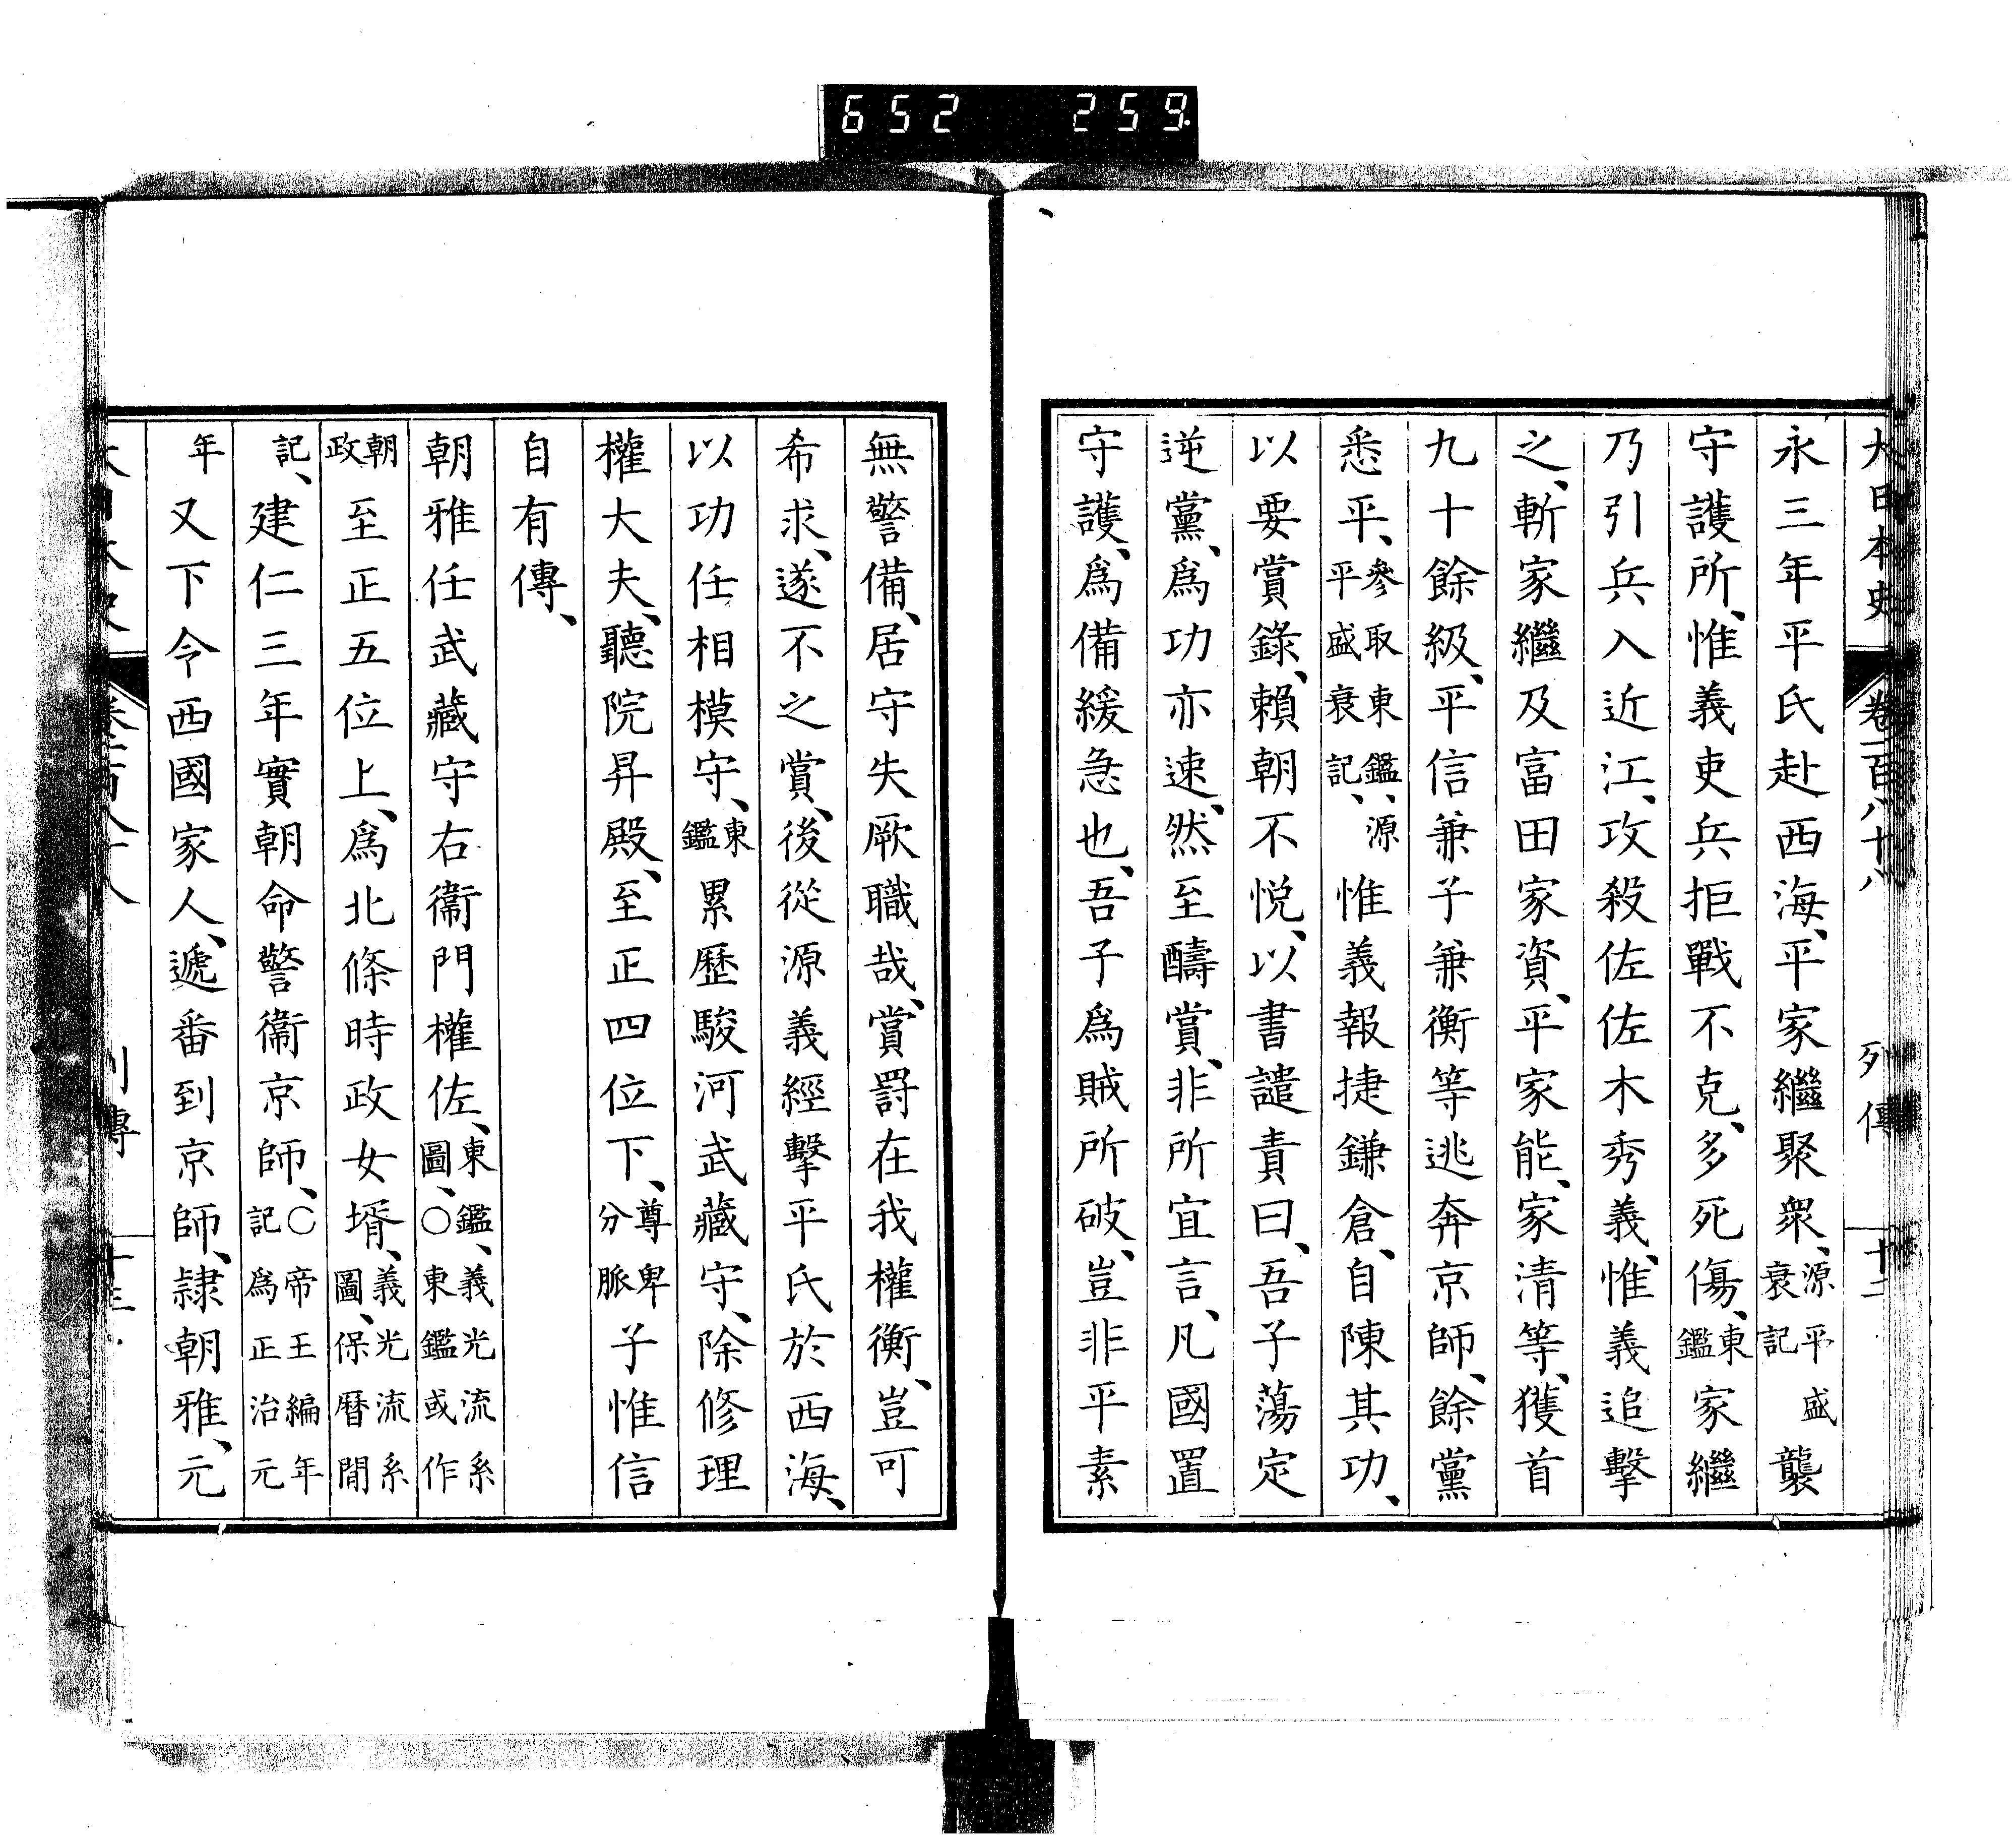 652 259
大日本史 卷百八十八 列傳 十二
永三年平氏赴西海、平家繼聚衆、源平盛衰記襲
守護所、惟義吏兵拒戰不克、多死傷、東鑑家繼
乃引兵入近江、攻殺佐佐木秀義、惟義追擊
之、斬家繼及富田家資、平家能、家清等、獲首
九十餘級、平信兼子兼衡等逃奔京師、餘黨
悉平、參取東鑑、源平盛衰記、惟義報捷鎌倉、自陳其功、
以要賞錄、賴朝不悅、以書譴責曰、吾子蕩定
逆黨、爲功亦速、然至醻賞、非所宜言、凡國置
守護、爲備緩急也、吾子爲賊所破、豈非平素
無警備、居守失厥職哉、賞罰在我權衡、豈可
希求、遂不之賞、後從源義經擊平氏於西海、
以功任相模守、東鑑累歷駿河武藏守、除修理
權大夫、聽院昇殿、至正四位下、尊卑分脈子惟信
自有傳、
朝雅任武藏守右衞門權佐、東鑑、義光流系圖、○東鑑或作
朝政至正五位上、爲北條時政女壻、義光流系圖、保曆閒
記、建仁三年實朝命警衞京師、○帝王編年記爲正治元
年又下令西國家人、遞番到京師、隷朝雅、元
大日本史 卷百八十八 列傳 十三